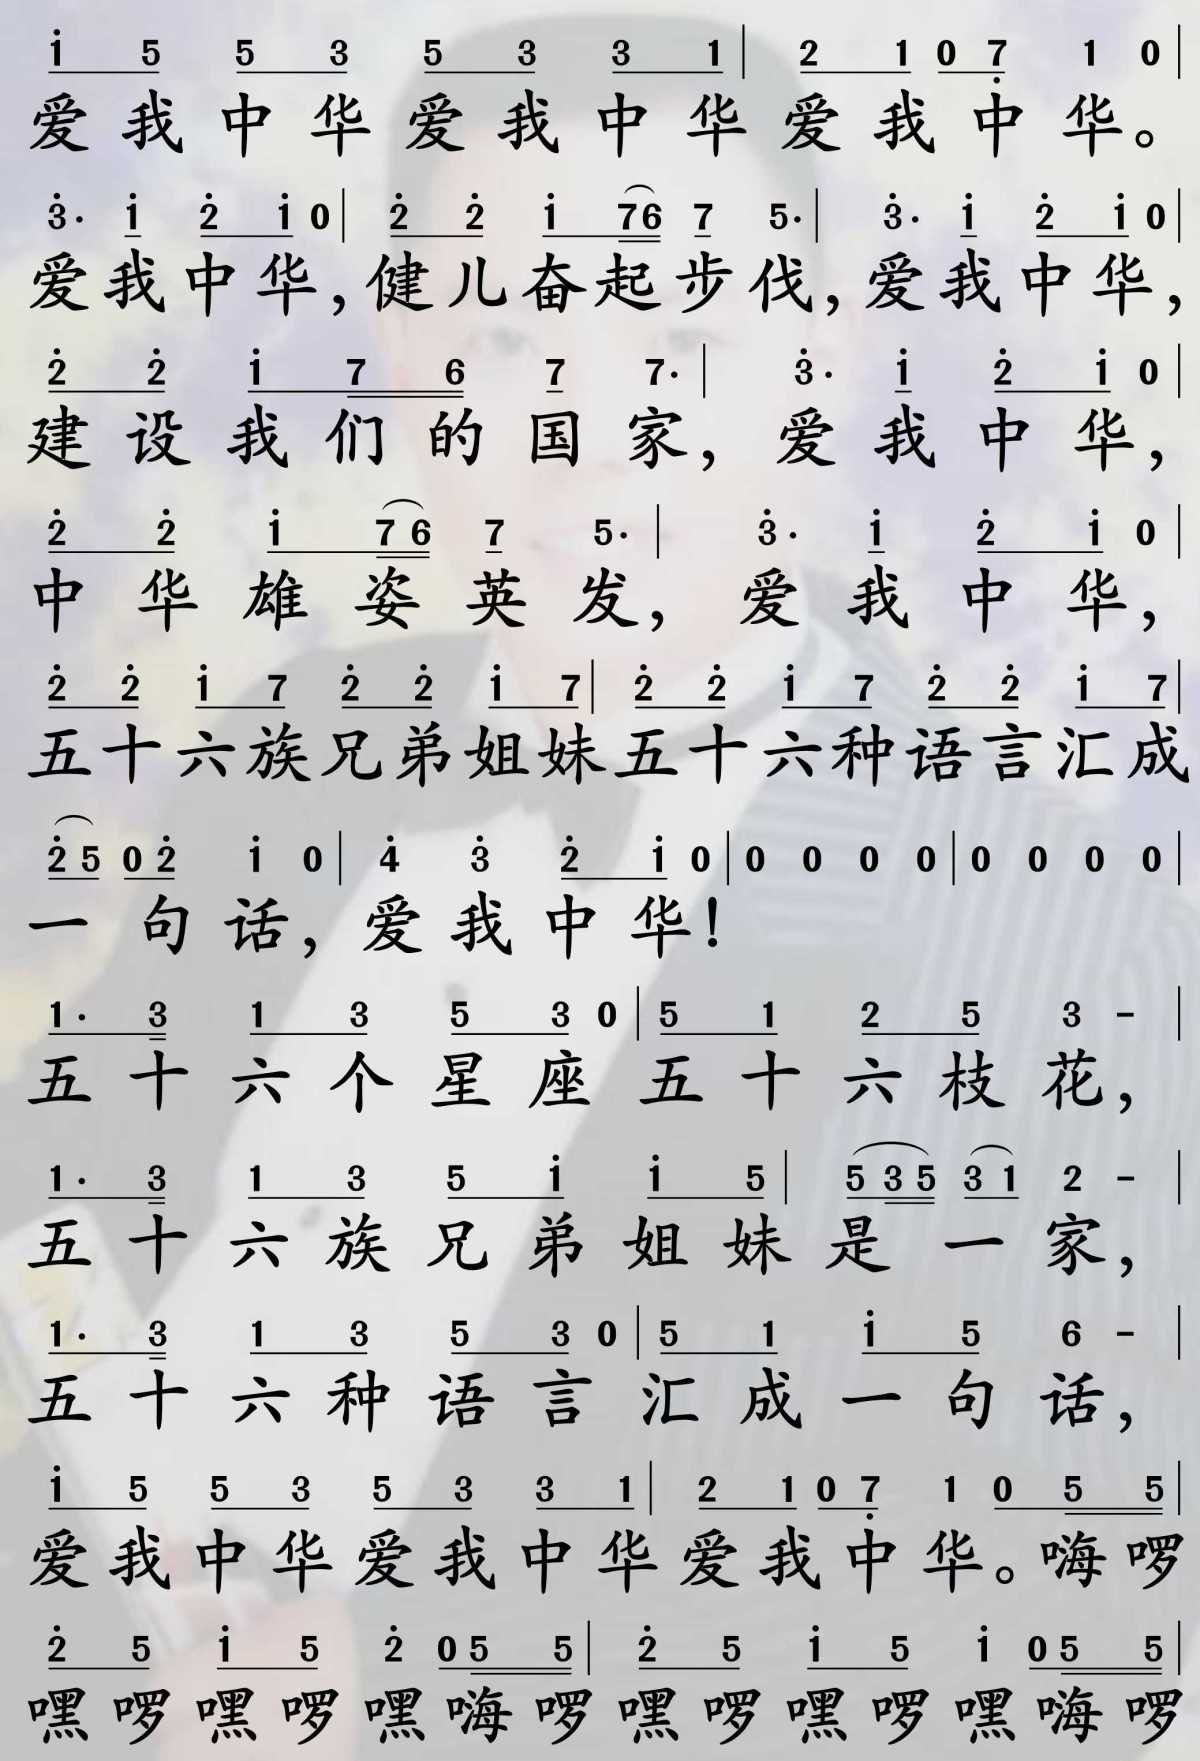 i 5 5 3 5 3 3 1 | 2 1 0 7̣ 1 0 |
爱我中华爱我中华爱我中华。
3̇· i 2̇ i 0 | 2̇ 2̇ i 76 7 5· | 3̇· i 2̇ i 0 |
爱我中华,健儿奋起步伐,爱我中华,
2̇ 2̇ i 7 6 7 7· | 3̇· i 2̇ i 0 |
建设我们的国家,爱我中华,
2̇ 2̇ i 7 6 7 5· | 3̇· i 2̇ i 0 |
中华雄姿英发,爱我中华,
2̇ 2̇ i 7 2̇ 2̇ i 7 | 2̇ 2̇ i 7 2̇ 2̇ i 7 |
五十六族兄弟姐妹五十六种语言汇成
2̇ 5 0 2̇ i 0 | 4̇ 3̇ 2̇ i 0 | 0 0 0 0 | 0 0 0 0 |
一句话,爱我中华!
1· 3 1 3 5 3 0 | 5 1 2 5 3 - |
五十六个星座五十六枝花,
1· 3 1 3 5 i i 5 | 5 3 5 3 1 2 - |
五十六族兄弟姐妹是一家,
1· 3 1 3 5 3 0 | 5 1 i 5 6 - |
五十六种语言汇成一句话,
i 5 5 3 5 3 3 1 | 2 1 0 7̣ 1 0 5 5 |
爱我中华爱我中华爱我中华。嗨啰
2̇ 5 i 5 2̇ 0 5 5 | 2̇ 5 i 5 i 0 5 5 |
嘿啰嘿啰嘿嗨啰嘿啰嘿啰嘿嗨啰